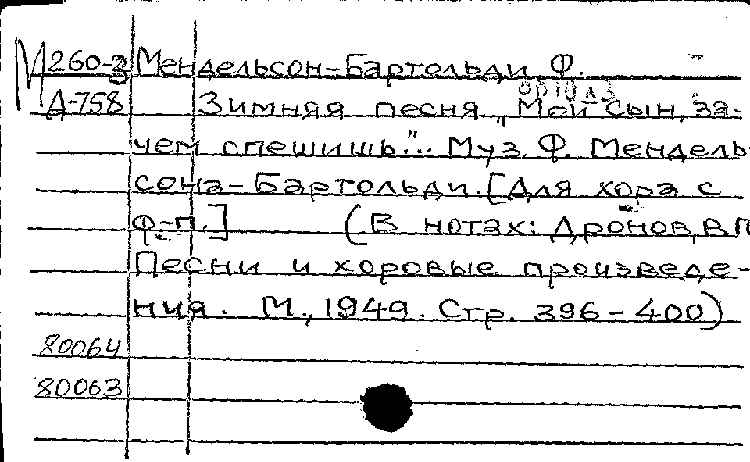 М260-3 Мендельсон-Бартольди, Ф.
Д-758 Зимняя песня „Мой сын, за-
чем спешишь"... Муз. Ф. Мендель-
сона-Бартольди. [Для хора с
ф-п.] (В нотах: Дронов, В.П.
Песни и хоровые произведе-
ния. М., 1949. Стр. 396-400)
80064
80063